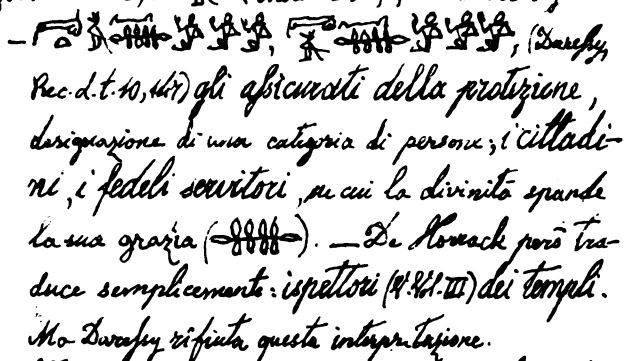 (Daressy,
Rec. d. t. 10, 147) gli assicurati della protezione,
designazione di una categoria di persone; i cittadi-
ni, i fedeli servitori, su cui la divinità spande
la sua grazia ( ). — De Horrack però tra-
duce semplicemente: ispettori ( III) dei templi.
Ma Daressy rifiuta questa interpretazione.